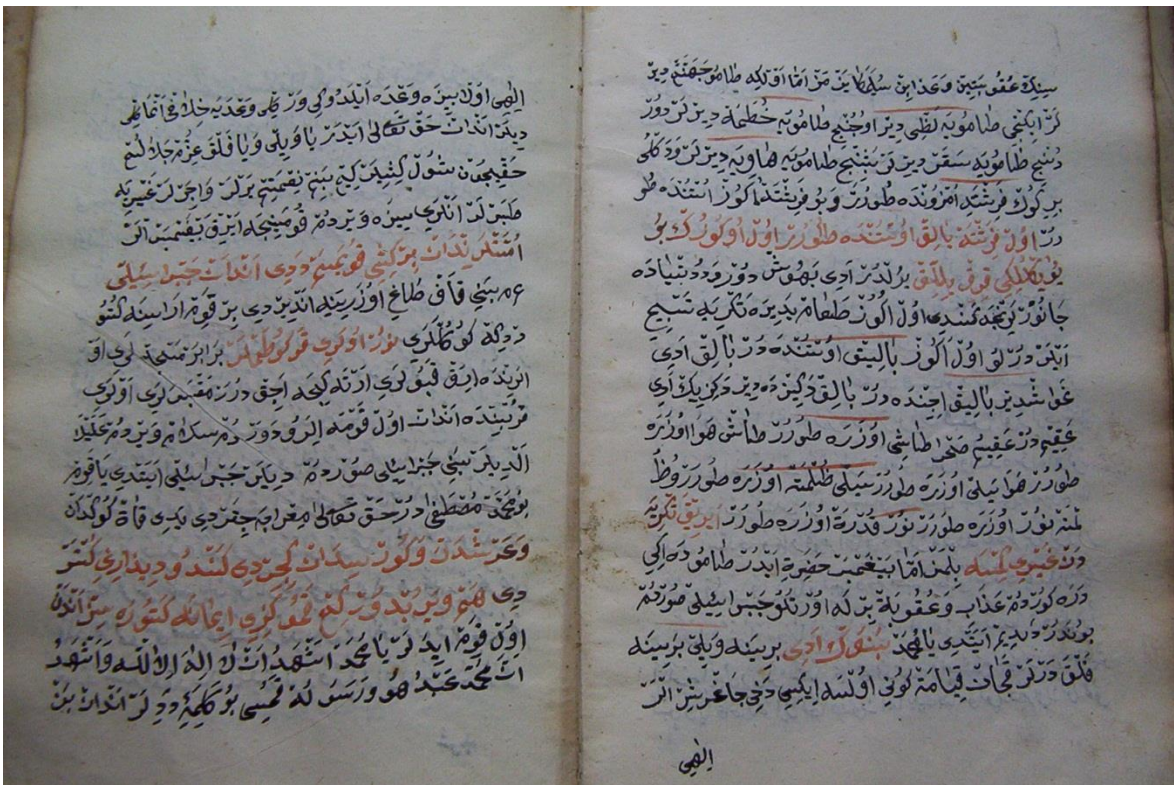 سنك عقوبتين وعذابن سويلكا يزمز اما اولكه طامو جهنم دير
لر ايكنجى طامويه لظى دير اوچنج طامويه حطمه ديرلر دور
دنج طامويه سقر ديرلر بشنج طامويه هاويه ديرلر ودكلى
بر كوك فرشته امرونده طورر وبو فرشته اكوز استنده طو
رر اول فرشته بالق اوستنده طورر اول اوكوزك بو
يوككلكى قرق بيللق يرلدر ادى بهوش دور ودنياده
جانور يوتجه كندى اول اكوز طعام بديره تكريه تسبيح
ايلر درلو اول اكوز باليق اوستنده در بالق ادى
غواشدير باليق اچنده در بالق دكيزده دير دكزيك ادى
عقيم در عقيم صخا طاشى اوزره طورر طاش هوا اوزره
طورر هوا ييلى اوزره طورر ييلى ظلمة اوزره طورر وظ
لمة نور اوزره طورر نور قدرة اوزره طورر ايريق تكريه
دن غيرى كمسه بلمز اما پيغمبر حضرة ايدر طاموده ايكى
دره كوردم عذاب وعقوبة برله اورتلو جبرائيلى صوردم
بونلردر ديديم ايتدى يا محمد بونك ادى برينه ويلى برينه
فلق درلر قچان قيامة كونى اولسه ايكيسى دخى چاغرشرلر
الهى
الهى اول بيزه وعده ايلدوكى ور كلى وعديه خلافى اتماغل
ديلر اندان حق تعالى ايدر يا ويلى ويا فلق عزم جلالم
حقيچون شول كشيلر كم بنم نعمتم يرلر واجرلر غيريه
طبرلر انلرى سيزه ويردم قومينجه ايرق بيقميش الر
امتلرندان بر كشى قويميم ددى اندان جبرائيلى
بنى قاف طاغ اوزرينه انديردى بر قوم اراسينه كتو
ردى كوككلرى نور اوكرى قوكوطولر برابر منبجدلرى او
الرنده ايرق قبولرى ارته كيجه اجق درر مقبرلرى اولرى
قربينده اندان اول قومه ايلرو دوردم سلام ويردم عليك
الديلر بنى جبرائيلى صوردم ديلر جبرائيلى ايتدى يا قوم
بو محمد مصطفى در حق تعالى معراجه چقردى يدى قاة كوكدن
وعرشدن وكورسيدان كچردى كندو ديدارى كوستر
دى هم ويريلدور كم قموكزى ايمانه كتوره سز اندن
اول قوم ايدلر يا محمد اشهد ان لا اله الا الله واشهد
ان محمد عبده ورسوله قميسى بو كلمه ددلر اندان بن